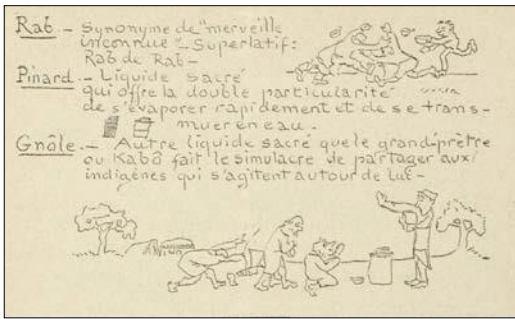 Rab._ Synonyme de "merveille
inconnue"_ Superlatif:
Rab de Rab_
Pinard._ Liquide sacré
qui offre la double particularité
de s'évaporer rapidement et de se trans-
muer en eau.
Gnôle._ Autre liquide sacré que le grand-prêtre
ou Kabô fait le simulacre de partager aux
indigènes qui s'agitent autour de lui_